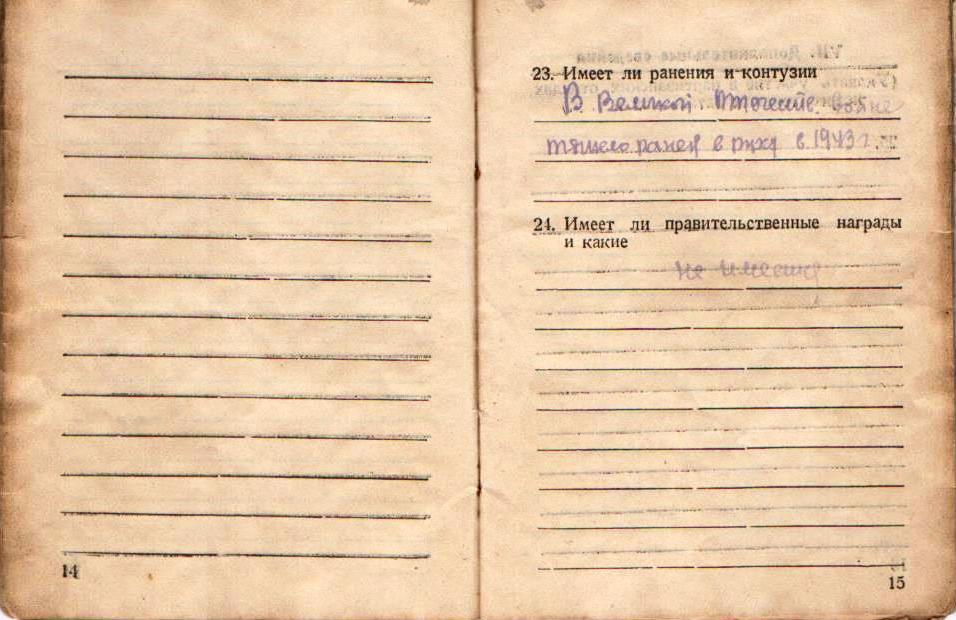 23. Имеет ли ранения и контузии
В Великой. Отечеств. войне
тяжело ранен в руку в 1943 г.
24. Имеет ли правительственные награды
и какие
не имеет
14
15